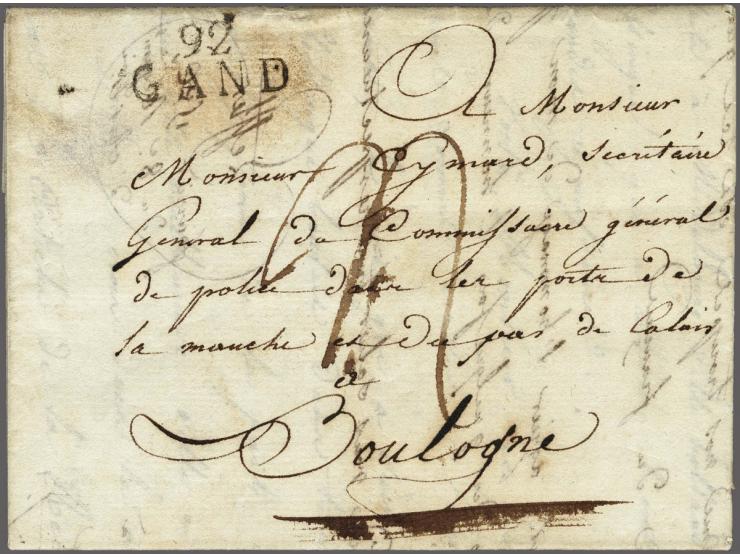 92
GAND
A Monsieur
Monsieur Eymard, secrétaire
General du Commissaire général
de police dans les ports de
la manche et du pas de Calais
a
Boulogne